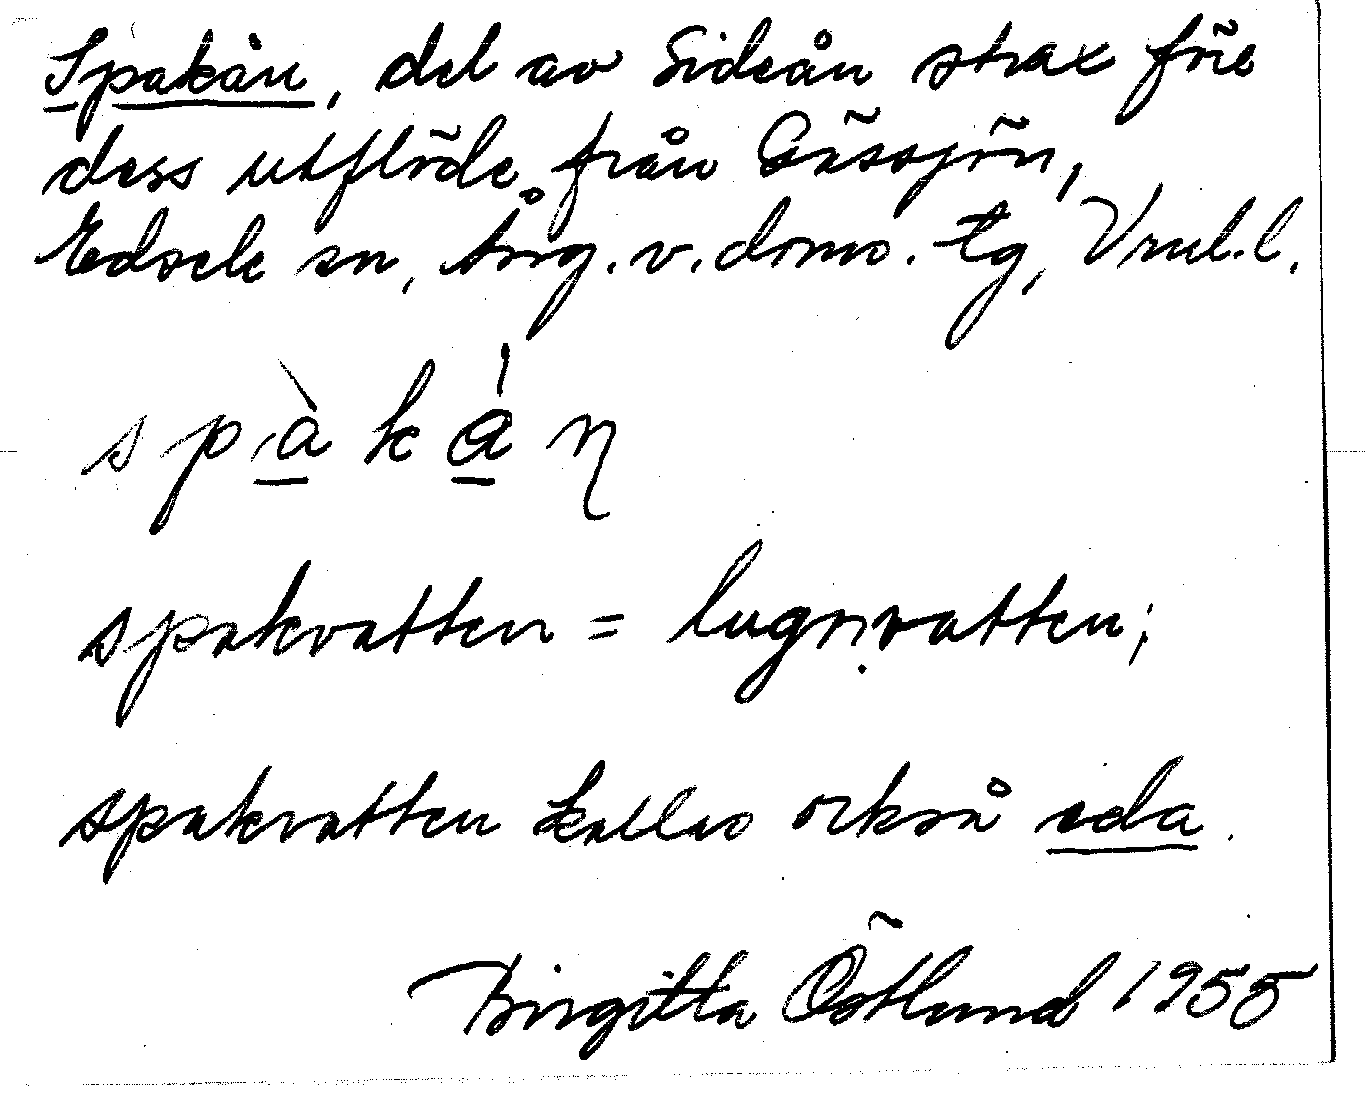 Spakån, del av Sideån strax före
dess utflöde från Gåssjön,
Edsele sn, Ång. v. doms. tg, Vnl. l.
spàkán
spakvatten = lugnvatten;
spakvatten kallas också eda.
Birgitta Östlund 1955